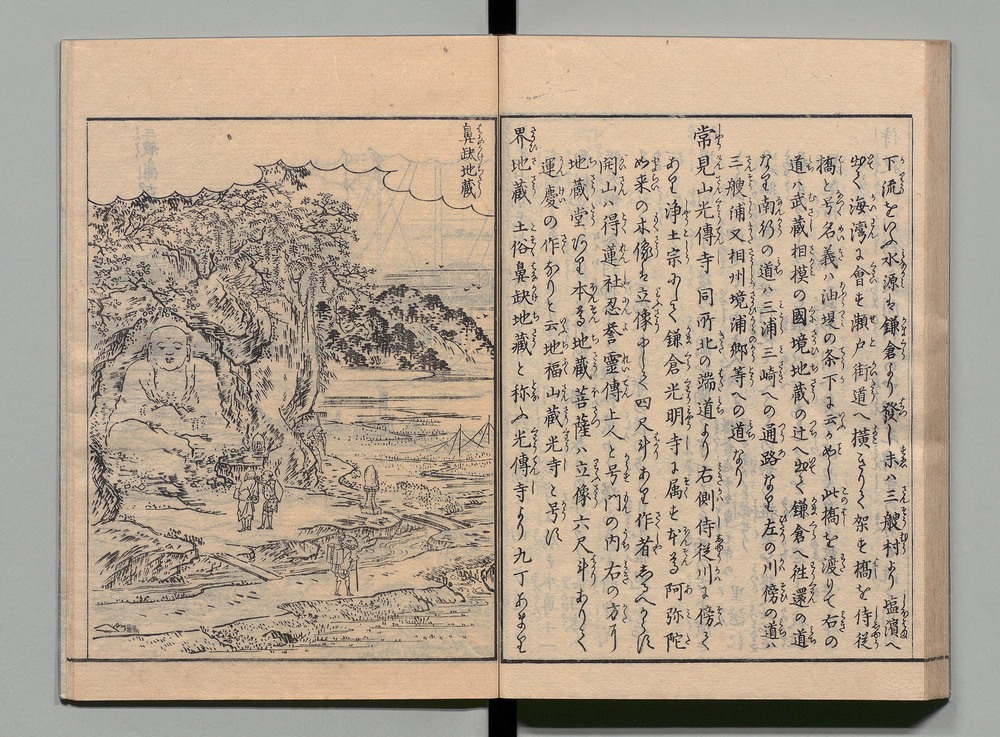 下流をいふ水源は鎌倉より發し末ハ三艘村より塩濱へ
出て海灣に會す瀬戸街道へ横きりて架す橋を侍従
橋と号名義ハ油堤の条下に云かめし此橋を渡りて右の
道ハ武蔵相模の國境地蔵の辻へ出て鎌倉へ往還の道
なり南折の道ハ三浦三崎への通路なり左の川傍の道ハ
三艘浦又相州境浦郷等への道なり
常見山光傳寺 同所北の端道より右側侍従川に傍て
あり浄土宗にして鎌倉光明寺に属す本尊阿弥陀
如来の木像は立像中しく四尺斗あり作者志へかたし
開山ハ得蓮社忍誉靈傳上人と号門の内右の方に
地蔵堂あり本尊地蔵菩薩ハ立像六尺斗ありて
運慶の作なりと云地福山蔵光寺と号す
界地蔵 土俗鼻缺地蔵と称ふ光傳寺より九丁あまり
鼻缺地蔵